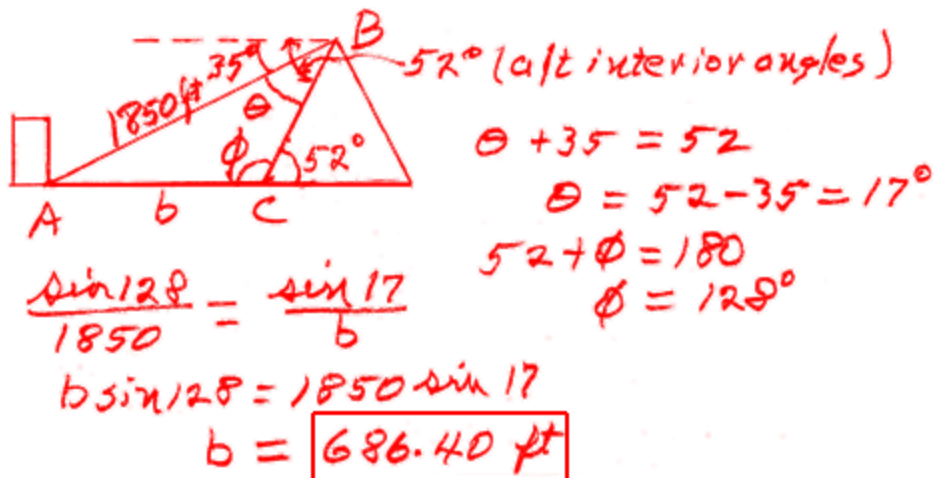 B
35°
52° (alt interior angles)
1850 ft
θ
ϕ
52°
A b C
θ + 35 = 52
θ = 52 - 35 = 17°
52 + ϕ = 180
ϕ = 128°
sin 128 / 1850 = sin 17 / b
b sin 128 = 1850 sin 17
b = 686.40 ft